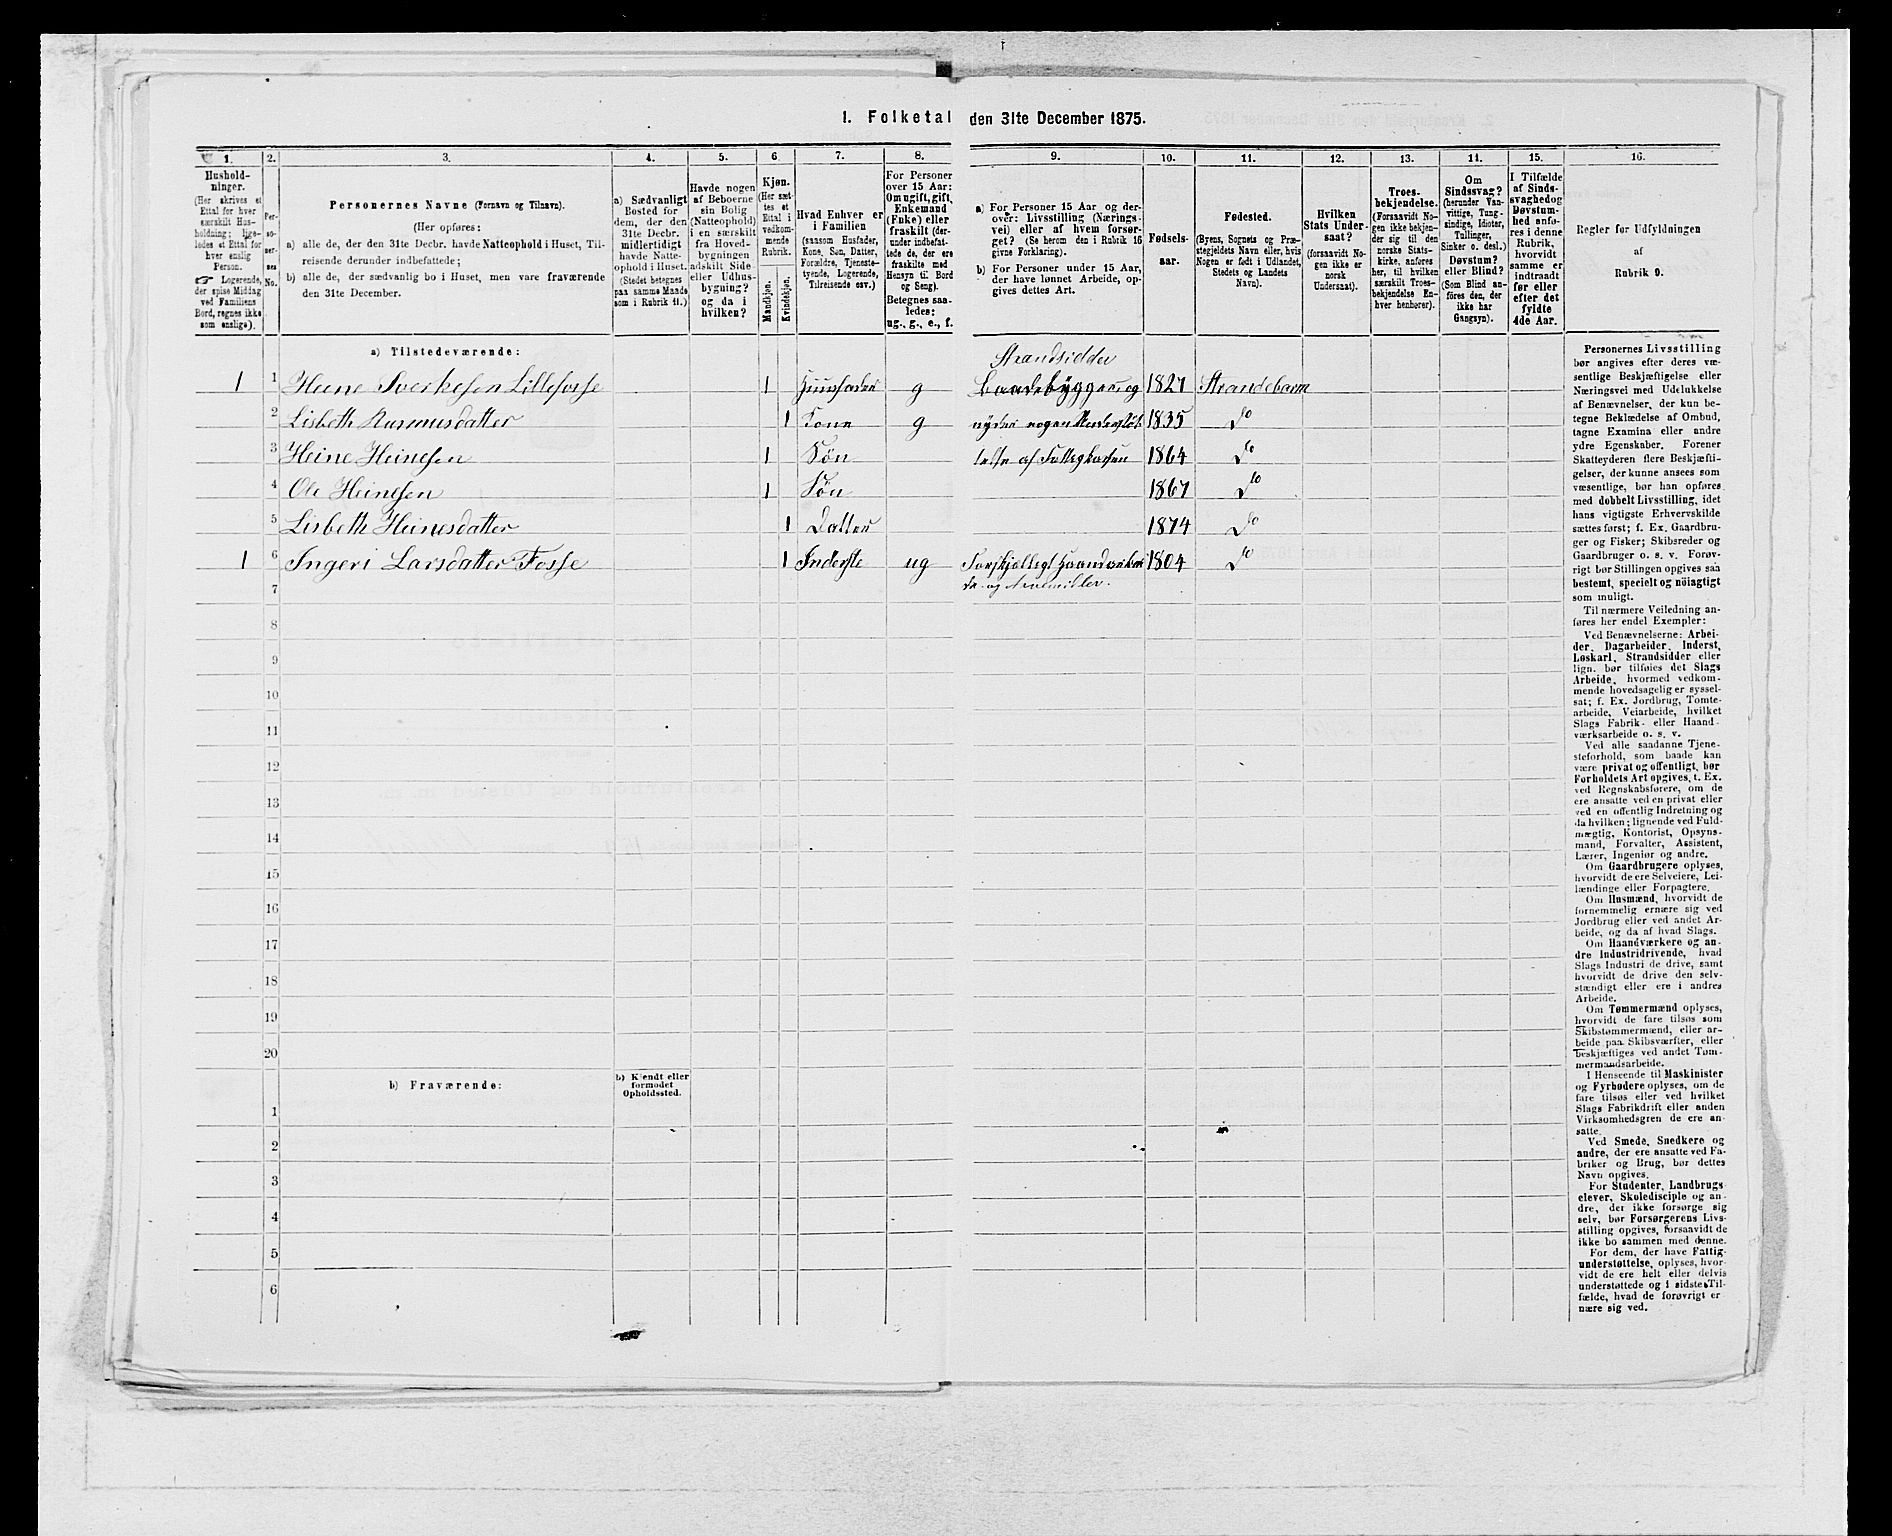 1. Folketal den 31te December 1875.
1.
2.
3.
4.
5.
6.
7.
8.
9.
10.
11.
12.
13.
14.
15.
16.
Hushold-
ninger.
(Her skrives et
Ettal for hver
særskilt Hus-
holdning; lige-
ledes et Ettal for
hver enslig
Person.
☞ Logerende,
der spise Middag
ved Familiens
Bord, regnes ikke
som enslige).
Per-
so-
ner-
nes
No.
Personernes Navne (Fornavn og Tilnavn).
(Her opføres:
a) alle de, der den 31te Decbr. havde Natteophold i Huset, Til-
reisende derunder indbefattede;
b) alle de, der sædvanlig bo i Huset, men vare fraværende
den 31te December.
a) Sædvanligt
Bosted for
dem, der den
31te Decbr.
midlertidigt
havde Natte-
ophold i Huset.
(Stedet betegnes
paa samme Maade
som i Rubrik 11.)
Havde nogen
af Beboerne
sin Bolig
(Natteophold)
i en særskilt
fra Hoved-
bygningen
adskilt Side-
eller Udhus-
bygning?
og da i
hvilken?
Kjøn.
(Her sæt-
tes et
Ettal i
vedkom-
mende
Rubrik.
Mandkjøn.
Kvindekjøn.
Hvad Enhver er
i Familien
(saasom Husfader,
Kone, Søn, Datter,
Forældre, Tjeneste-
tyende, Logerende,
Tilreisende osv.)
For Personer
over 15 Aar:
Om ugift, gift,
Enkemand
(Enke) eller
fraskilt (der-
under indbefat-
tede de, der ere
fraskilte med
Hensyn til Bord
og Seng).
Betegnes saa-
ledes:
ug., g., e., f.
a) For Personer 15 Aar og der-
over: Livsstilling (Nærings-
vei) eller af hvem forsør-
get? (Se herom den i Rubrik 16
givne Forklaring).
b) For Personer under 15 Aar,
der have lønnet Arbeide, op-
gives dettes Art.
Fødsels-
aar.
Fødested.
(Byens, Sognets og Præ-
stegjeldets Navn eller, hvis
Nogen er født i Udlandet,
Stedets og Landets
Navn).
Hvilken
Stats Under-
saat?
(forsaavidt No-
gen ikke er
norsk
Undersaat).
Troes-
bekjendelse.
(Forsaavidt No-
gen ikke bekjen-
der sig til den
norske Stats-
kirke, anføres
her, til hvilken
særskilt Troes-
bekjendelse En-
hver henhører).
Om
Sindssvag?
(herunder Van-
vittige, Tung-
sindige, Idioter,
Tullinger,
Sinker o. desl.)
Døvstum?
eller Blind?
(Som Blind an-
føres den, der
ikke har
Gangsyn).
I Tilfælde
af Sinds-
svaghed og
Døvstum-
hed anfø-
res i denne
Rubrik,
hvorvidt
samme er
indtraadt
før eller
efter det
fyldte
4de Aar.
Regler for Udfyldningen
af
Rubrik 9.
a) Tilstedeværende:
Strandsidder
1 1 Heine Sverkesen Lillefosse 1 Huusfader g Baadebygger, og 1827 Strandebarm
2 Lisbeth Rasmusdatter 1 Kone g nyder nogen Understøt- 1835 do
3 Heine Heinesen 1 Søn telse af Fattigkassen 1864 do
4 Ole Heinesen 1 Søn 1867 do
5 Lisbeth Heinesdatter 1 Datter 1874 do
1 6 Ingeri Larsdatter Fosse 1 Inderste ug Forskjelligt Haandarbei 1804 do
7 de og Almemidler.
8
9
10
11
12
13
14
15
16
17
18
19
20
b) Fraværende:
b) Kjendt eller
formodet
Opholdssted.
1
2
3
4
5
6
Personernes Livsstilling
bør angives efter deres væ-
sentlige Beskjæftigelse eller
Næringsvei med Udelukkelse
af Benævnelser, der kun be-
tegne Beklædelse af Ombud,
tagne Examina eller andre
ydre Egenskaber. Forener
Skatteyderen flere Beskjæfti-
gelser, der kunne ansees som
væsentlige, bør han opføres
med dobbelt Livsstilling, idet
hans vigtigste Erhvervskilde
sættes først; f. Ex. Gaardbru-
ger og Fisker; Skibsreder og
Gaardbruger o. s. v. Forøv-
rigt bør Stillingen opgives saa
bestemt, specielt og nöiagtigt
som muligt.
Til nærmere Veiledning an-
føres her endel Exempler:
Ved Benævnelserne: Arbei-
der, Dagarbeider, Inderst,
Løskarl, Strandsidder eller
lign. bør tilføies det Slags
Arbeide, hvormed vedkom-
mende hovedsagelig er syssel-
sat; f. Ex. Jordbrug, Tomte-
arbeide, Veiarbeide, hvilket
Slags Fabrik- eller Haand-
værksarbeide o. s. v.
Ved alle saadanne Tjene-
steforhold, som baade kan
være privat og offentligt, bør
Forholdets Art opgives, t. Ex.
ved Regnskabsførere, om de
ere ansatte ved en privat eller
ved en offentlig Indretning og
da hvilken; lignende ved Fuld-
mægtig, Kontorist, Opsyns-
mand, Forvalter, Assistent,
Lærer, Ingeniør og andre.
Om Gaardbrugere oplyses,
hvorvidt de ere Selveiere, Lei-
lændinge eller Forpagtere.
Om Husmænd, hvorvidt de
fornemmelig ernære sig ved
Jordbrug eller ved andet Ar-
beide, og da af hvad Slags.
Om Haandværkere og an-
dre Industridrivende, hvad
Slags Industri de drive, samt
hvorvidt de drive den selv-
stændigt eller ere i andres
Arbeide.
Om Tømmermænd oplyses,
hvorvidt de fare tilsøs som
Skibstømmermænd, eller ar-
beide paa Skibsværfter, eller
beskjæftiges ved andet Tøm-
mermandsarbeide.
I Henseende til Maskinister
og Fyrbødere oplyses, om de
fare tilsøs eller ved hvilket
Slags Fabrikdrift eller anden
Virksomhedsgren de ere an-
satte.
Ved Smede, Snedkere og
andre, der ere ansatte ved Fa-
briker og Brug, bør dettes
Navn opgives.
For Studenter, Landbrugs-
elever, Skoledisciple og an-
dre, der ikke forsørge sig
selv, bør Forsørgerens Livs-
stilling opgives, forsaavidt de
ikke bo sammen med denne.
For dem, der have Fattig-
understøttelse, oplyses, hvor-
vidt de ere helt eller delvis
understøttede og i sidste Til-
fælde, hvad de forøvrigt er-
nære sig ved.